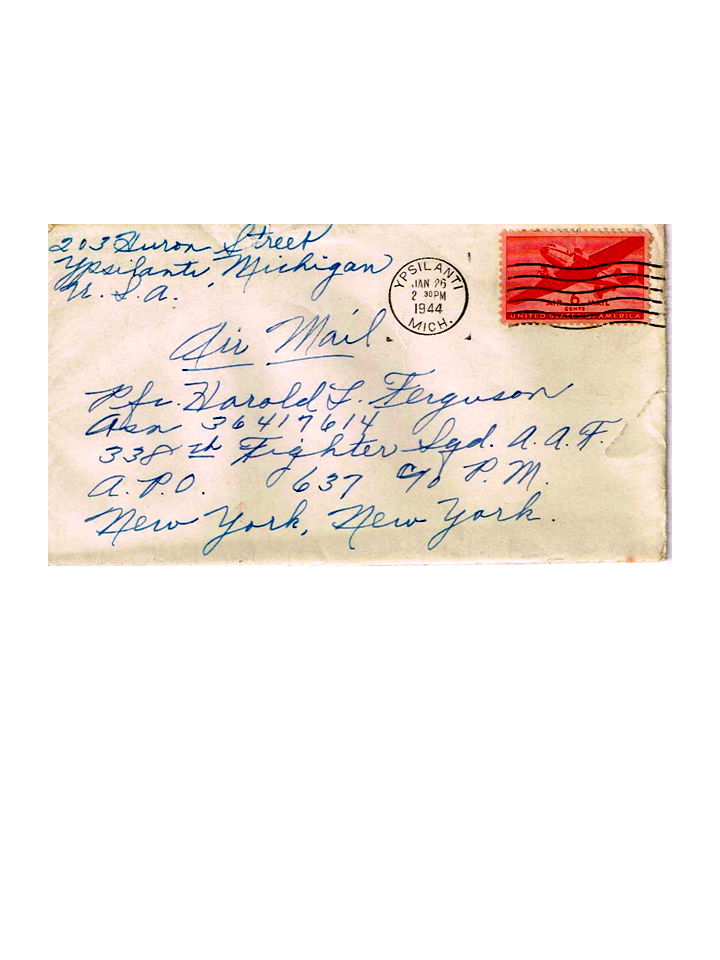 203 Huron Street
Ypsilanti, Michigan
U. S. A.
YPSILANTI
JAN 26
2 30 PM
1944
MICH.
AIR 6 MAIL
CENTS
UNITED STATES OF AMERICA
Air Mail
Pfc. Harold L. Ferguson
Asn 36417614
338 th Fighter Sqd. A. A. F.
A. P. O. 637 c/o P. M.
New York, New York.